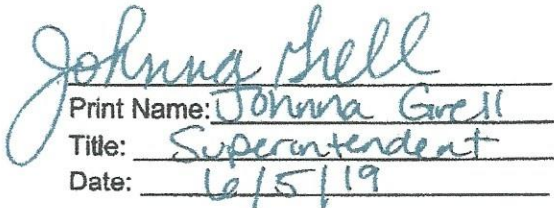 Johnna Grell
Print Name: Johnna Grell
Title: Superintendent
Date: 6/5/19